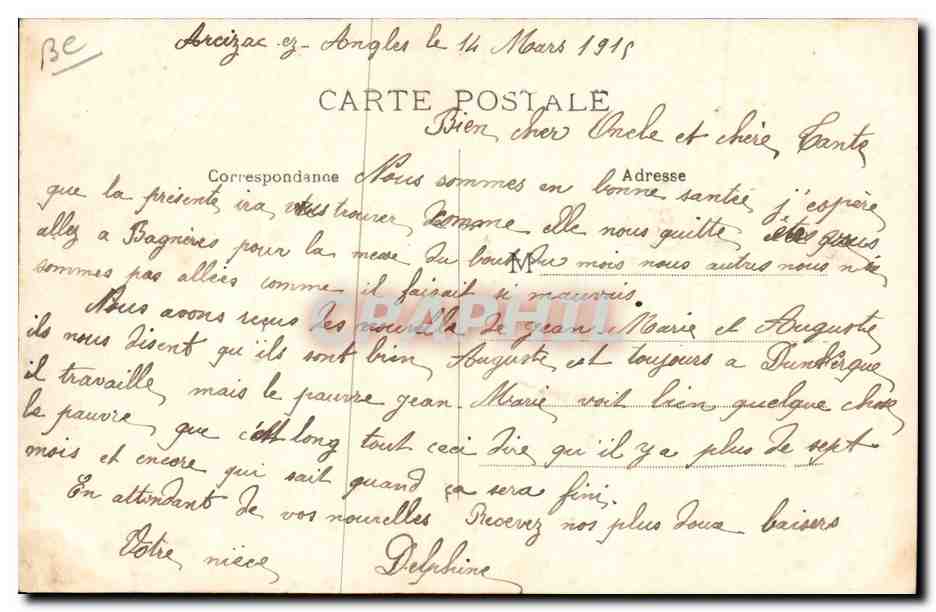 BC
Arcizac-ez-Angles le 14 Mars 1915
CARTE POSTALE
Bien cher Oncle et chère Tante
Correspondance
Adresse
Nous sommes en bonne santée j'espère
que la présente ira vous trouver comme elle nous quitte êtes vous
allez a Bagnères pour la messe du bout du mois nous autres nous n'y
M
sommes pas allées comme il faisait si mauvais.
Nous avons reçus des nouvelle de Jean-Marie et Auguste
ils nous disent qu'ils sont bien Auguste est toujours a Dunkerque
il travaille, mais le pauvre Jean-Marie voit bien quelque chose
le pauvre, que c'est long tout ceci dire qu'il y a plus de sept
mois et encore qui sait quand ça sera fini.
En attendant de vos nouvelles Recevez nos plus doux baisers
Votre nièce Delphine
CPAPHIL